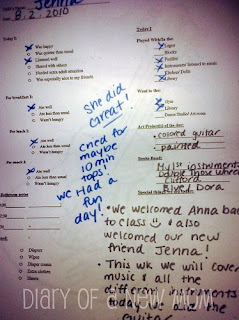 Jenna
Date: 8.2.2010
Today I:
Was happy
Was quieter than usual
Listened well
Shared with others
Needed extra adult attention
Was especially nice to my friends
For breakfast I:
Ate well
Ate less than usual
Wasn't hungry
For lunch I:
Ate well
Ate less than usual
Wasn't hungry
For snack I:
Ate well
Ate less than usual
Wasn't hungry
she did
great!
cried for
maybe
10 min
tops.
we Had a
fun
day!
Diapers
Wipes
Diaper cream
Extra clothes
Sheets
Today I
Played With/In the:
Legos
Blocks
Puzzles
Instruments/ listened to music
Library
Went to the:
Gym
Library
Art Project(s) of the day:
• colored guitar
• painted
Books Read:
My 1st instruments
Clifford
Dora
• We welcomed Anna back
to class & also
welcomed our new
friend Jenna!
• This wk we will cover
music & all the
different instruments
today we did the
guitar
DIARY OF A NEW MOM